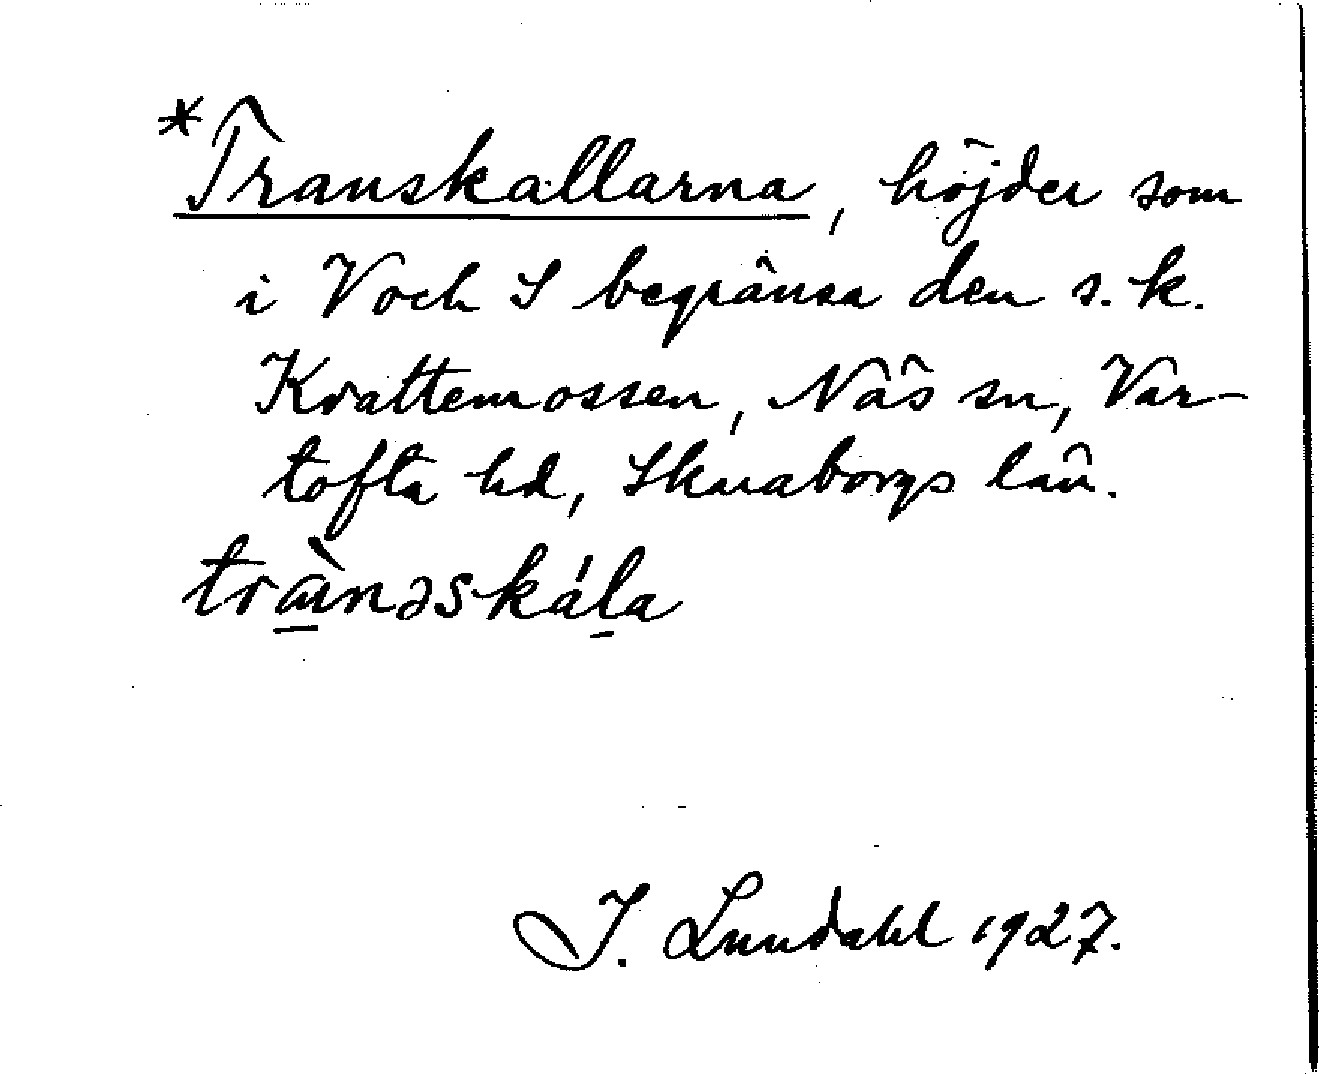 *Transkallarna, höjder som
i V och S begränsa den s.k.
Krattemossen, Näs sn, Var-
tofta hd, Skaraborgs län.
trànəskála
I. Lundahl 1927.